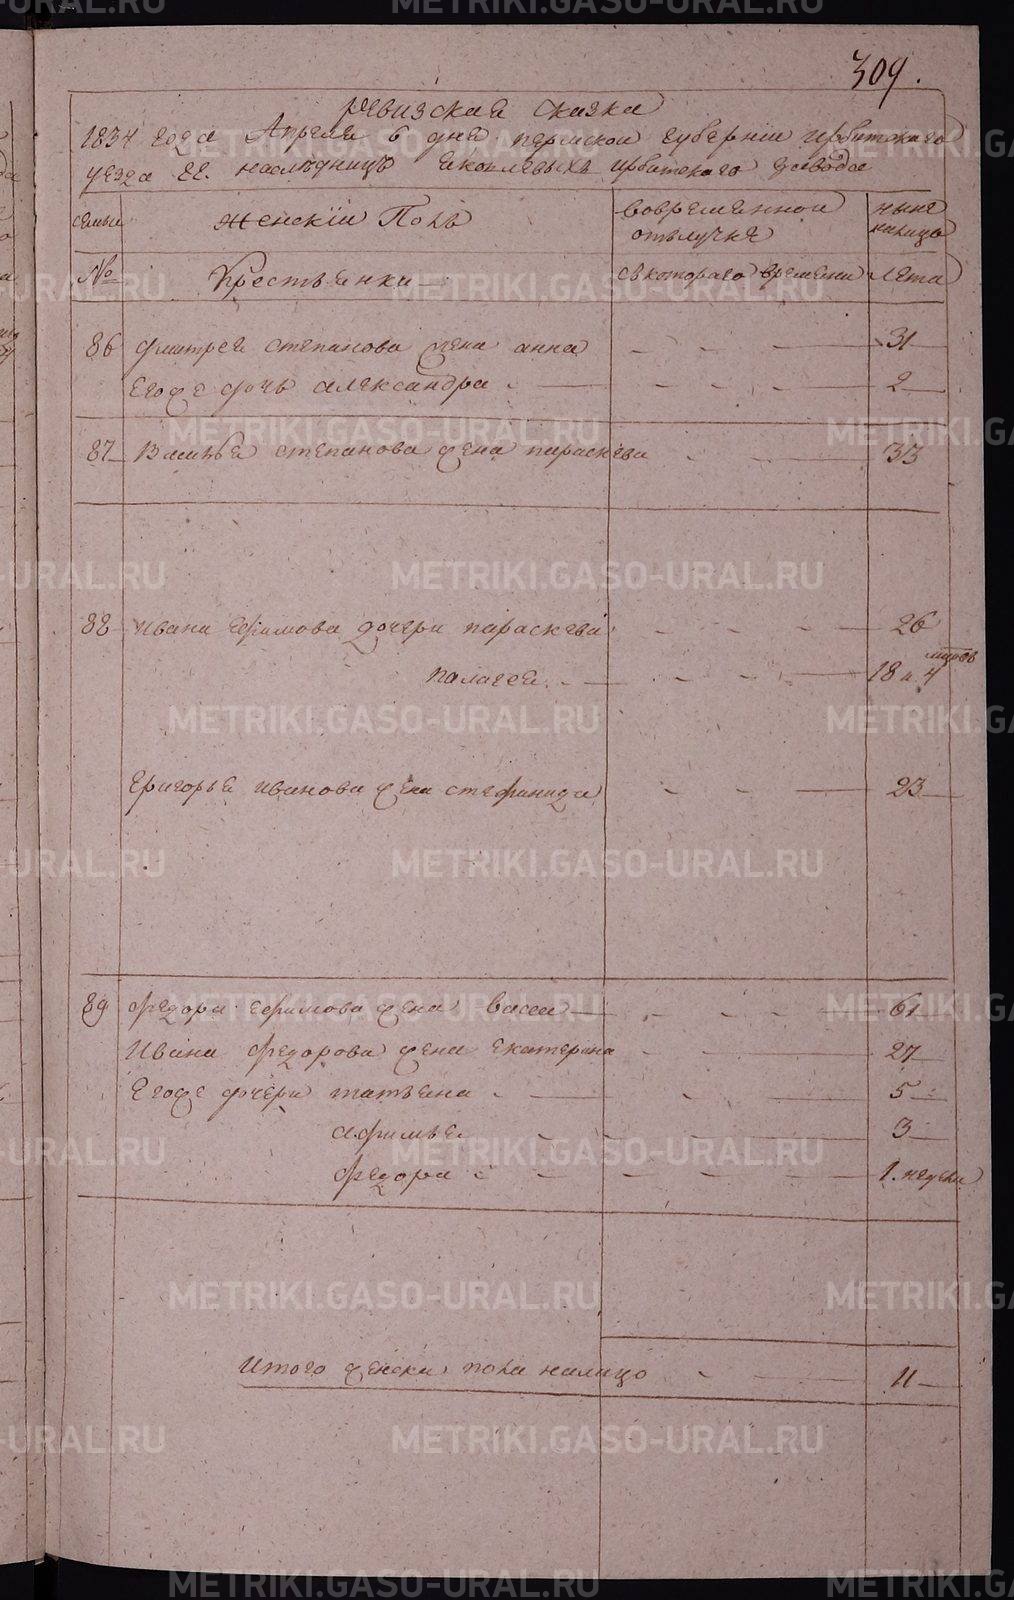 309.
Ревизская Сказка
1834 года Апреля 6 дня Пермской Губернии Ирбитского
уезда ГГ. наследниц Яковлевых Ирбитского завода
семьи
Женский Полъ
во временной отлучке
ныне налицо
№
Крестьянки
съ котораго времени
лета
86 Дмитрея Степанова жена Анна - - - 31
Егоже дочь Александра - - - 2
87 Василья Степанова жена Параскева - - - 33
88 Ивана Ефимова дочери Параскева - - - 26
Палагея - - - 18 и 4
Григорья Иванова жена Стефанида - - - 23
89 Федора Ефимова жена Васса - - - 61
Ивана Федорова жена Екатерина - - - 27
Егоже дочери Татьяна - - - 5
Афимья - - - 3
Федора - - - 1. недели
Итого женска пола налицо - - 11
METRIKI.GASO-URAL.RU